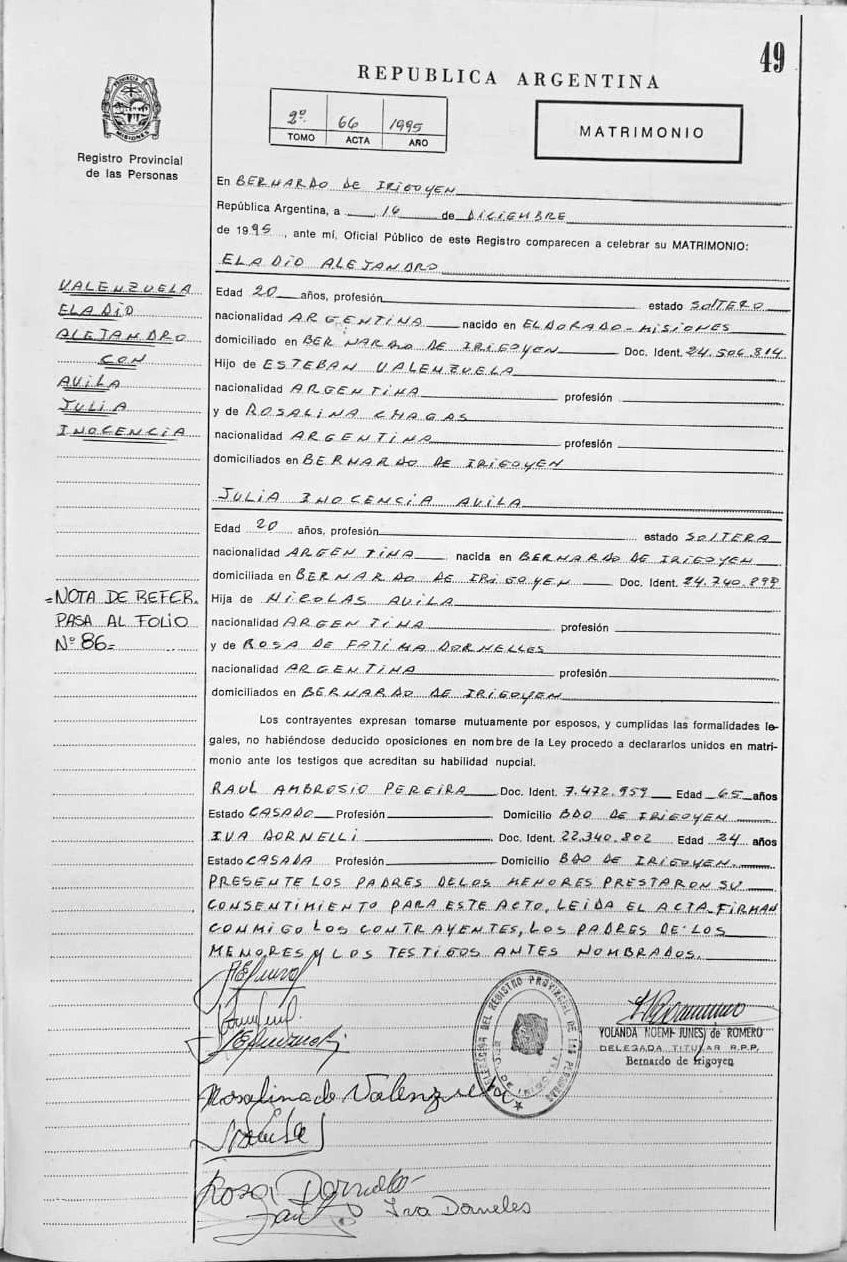 49
REPUBLICA ARGENTINA
2º 66 1995
TOMO ACTA AÑO
MATRIMONIO
PROVINCIA DE MISIONES
Registro Provincial
de las Personas
En BERNARDO DE IRIGOYEN
República Argentina, a 16 de DICIEMBRE
de 1995, ante mí, Oficial Público de este Registro comparecen a celebrar su MATRIMONIO:
ELADIO ALEJANDRO
VALENZUELA
ELADIO
ALEJANDRO
CON
AVILA
JULIA
INOCENCIA
Edad 20 años, profesión estado SOLTERO
nacionalidad ARGENTINA nacido en ELDORADO-MISIONES
domiciliado en BERNARDO DE IRIGOYEN Doc. Ident. 24.506.814
Hijo de ESTEBAN VALENZUELA
nacionalidad ARGENTINA profesión
y de ROSALINA CHAGAS
nacionalidad ARGENTINA profesión
domiciliados en BERNARDO DE IRIGOYEN
JULIA INOCENCIA AVILA
Edad 20 años, profesión estado SOLTERA
nacionalidad ARGENTINA nacida en BERNARDO DE IRIGOYEN
domiciliada en BERNARDO DE IRIGOYEN Doc. Ident. 24.740.899
=NOTA DE REFER.
PASA AL FOLIO
Nº 86=
Hija de NICOLAS AVILA
nacionalidad ARGENTINA profesión
y de ROSA DE FATIMA DORNELLES
nacionalidad ARGENTINA profesión
domiciliados en BERNARDO DE IRIGOYEN
Los contrayentes expresan tomarse mutuamente por esposos, y cumplidas las formalidades le-
gales, no habiéndose deducido oposiciones en nombre de la Ley procedo a declararlos unidos en matri-
monio ante los testigos que acreditan su habilidad nupcial.
RAUL AMBROSIO PEREIRA Doc. Ident. 7.472.959 Edad 65 años
Estado CASADO Profesión Domicilio BDO DE IRIGOYEN
IVA DORNELLI Doc. Ident. 22.340.802 Edad 24 años
Estado CASADA Profesión Domicilio BDO DE IRIGOYEN.
PRESENTE LOS PADRES DELOS MENORES PRESTARON SU
CONSENTIMIENTO PARA ESTE ACTO, LEIDA EL ACTA FIRMAN
CONMIGO LOS CONTRAYENTES, LOS PADRES DE LOS
MENORES Y LOS TESTIGOS ANTES NOMBRADOS.
DELEGACION DEL REGISTRO PROVINCIAL DE LAS PERSONAS
YOLANDA NOEMI JUNES de ROMERO
DELEGADA TITULAR R.P.P.
Bernardo de Irigoyen
Rosalina de Valenzuela
Rosa
Iva Dorneles